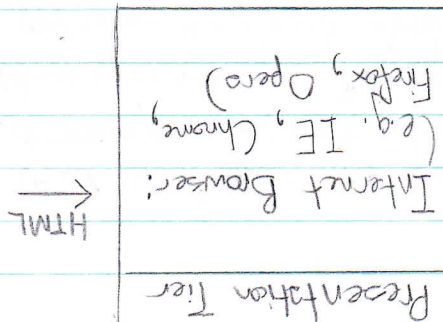 Presentation Tier
Internet Browser:
(e.g. IE, Chrome,
Firefox, Opera)
HTML